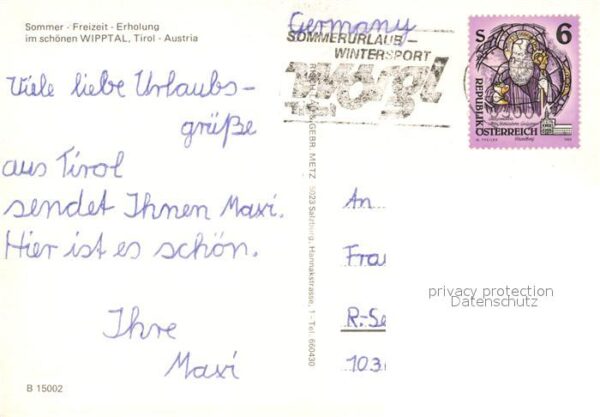 Sommer - Freizeit - Erholung
im schönen WIPPTAL, Tirol - Austria
Germany
SOMMERURLAUB-
WINTERSPORT
Tirol
S 6
REPUBLIK
ÖSTERREICH
Viele liebe Urlaubs-
grüße
aus Tirol
sendet Ihnen Maxi.
Hier ist es schön.
Ihre
Maxi
GEBR. METZ, 5023 Salzburg, Hannakstrasse, 1 - Tel. 660430
An
Frau
R.-Se
103
privacy protection
Datenschutz
B 15002